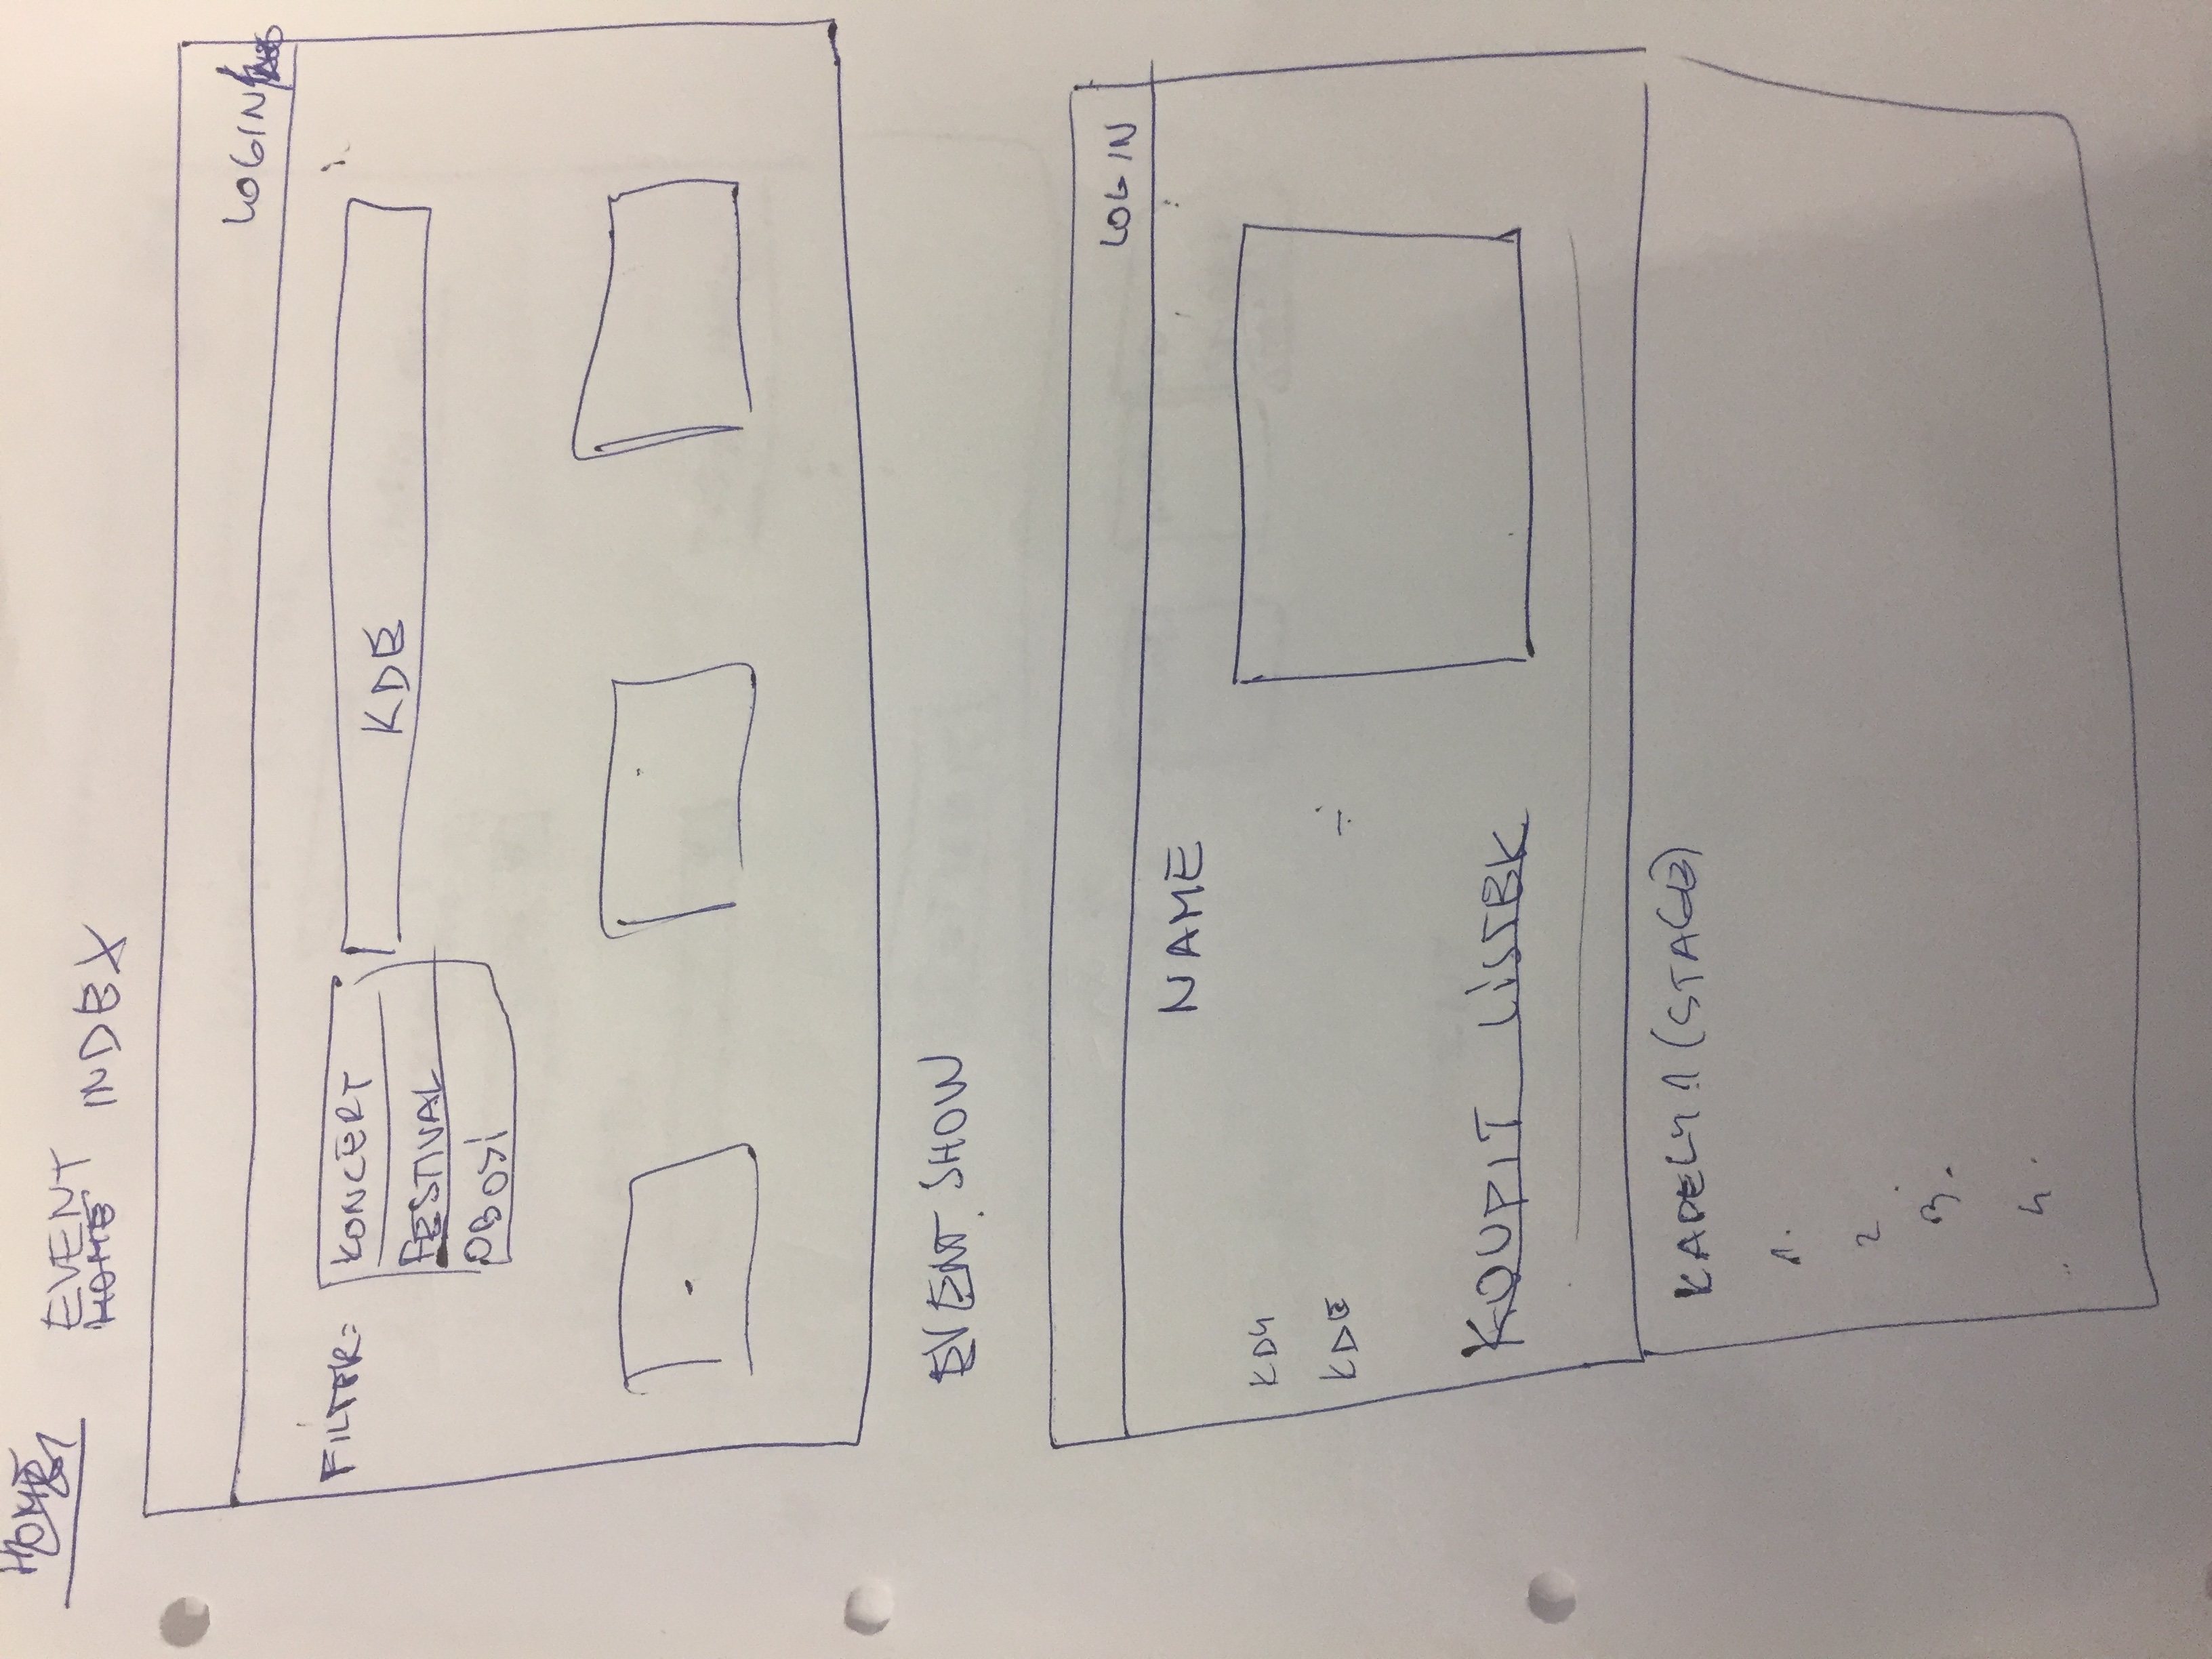 HOME
EVENT
HOME INDEX
LOGIN
FILTER:
KONCERT
KDE
FESTIVAL
OBOJÍ
EVENT SHOW
LOGIN
NAME
KDY
KDE
KOUPIT LÍSTEK
KAPELY 1 (STAGE)
1.
2.
3.
4.